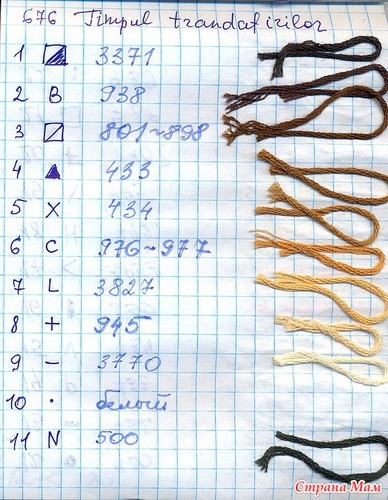 676 Timpul trandafirilor
1 3371
2 B 938
3 801~898
4 ▲ 433
5 X 434
6 C 976~977
7 L 3827
8 + 945
9 – 3770
10 · белый
11 N 500
Страна Мам